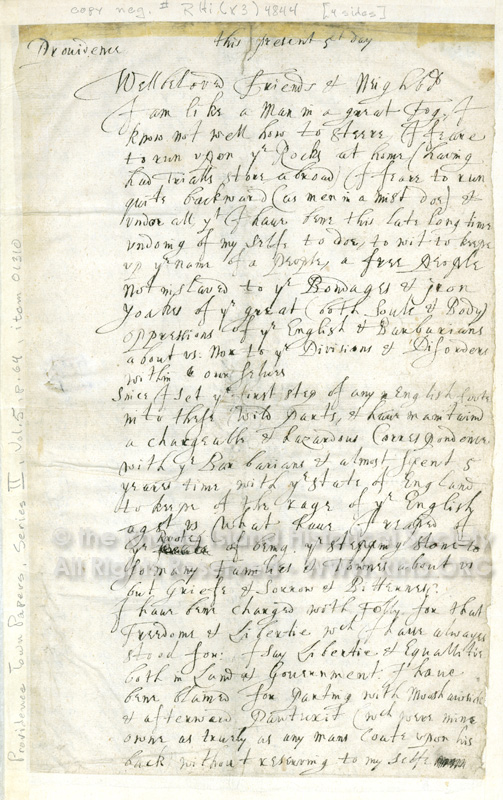 copy neg. # RHi (X3) 4844 [4 sides]
Providence this present 5t day
Wellbeloved Friends & Neighbrs
I am like a Man in a great Fog. I
know not well how to steere. I feare
to run upon ye Rocks at home (having
had trialls store abroad) I feare to run
quite backward (as men in a mist doe) &
undoe all yt I have bene this late long time
undoing of my selfe to doe, to wit to keepe
up ye name of a People, a free People
not inslaved to ye Bondages & iron
Yoakes of ye great (both Soule & Body)
oppressions of ye English & Barbarians
about us: Nor to ye Divisions & Disorders
within our selves
Since I set ye first step of any English foote
into these wild parts, & have maintaind
a chargeable & hazardous Correspondence
with ye Barbarians & almost spent 5
yeares time with ye state of England
to keepe of the rage of ye English
agst us What have I reaped of
ye roote of being ye stepping stone in
so many Families & Townes about us
but Griefe & Sorrow & Bitternes?
I have bene charged with Folly for that
Freedome & Libertie wch I have alwayes
stood for: I say Libertie & Equalitie
both in Land & Government. I have
bene blamed for Parting with Moshausick
& afterward Pawtuxit (wch were mine
owne as truely as any mans Coate upon his
back without reserving to my selfe
© the Rhode Island Historical Society
All Rights Reserved WWW.RIHS.ORG
Providence Town Papers, Series II, Vol. 5, p. 64 item 01310